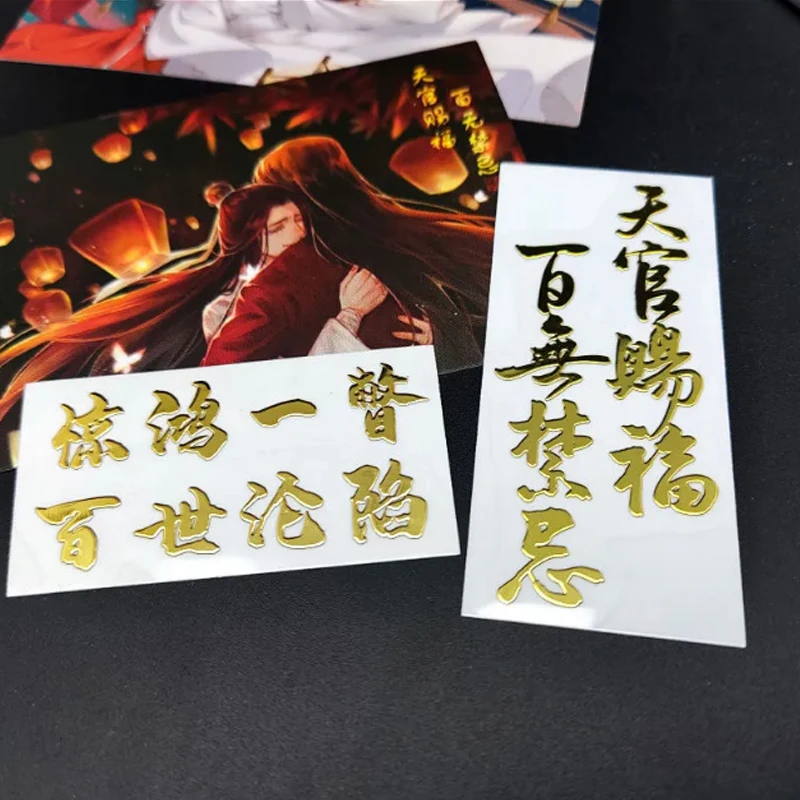 天官赐福
百无禁忌
惊鸿一瞥
百世沦陷
天官賜福
百無禁忌